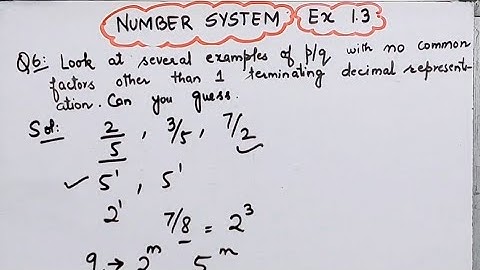 NUMBER SYSTEM Ex 1.3
Q6: Look at several examples of p/q with no common
factors other than 1 terminating decimal represent-
ation. Can you guess.
Sol: 2/5 , 3/5 , 7/2
✓ 5¹ , 5¹
2¹ 7/8 = 2³
q → 2ᵐ 5ⁿ